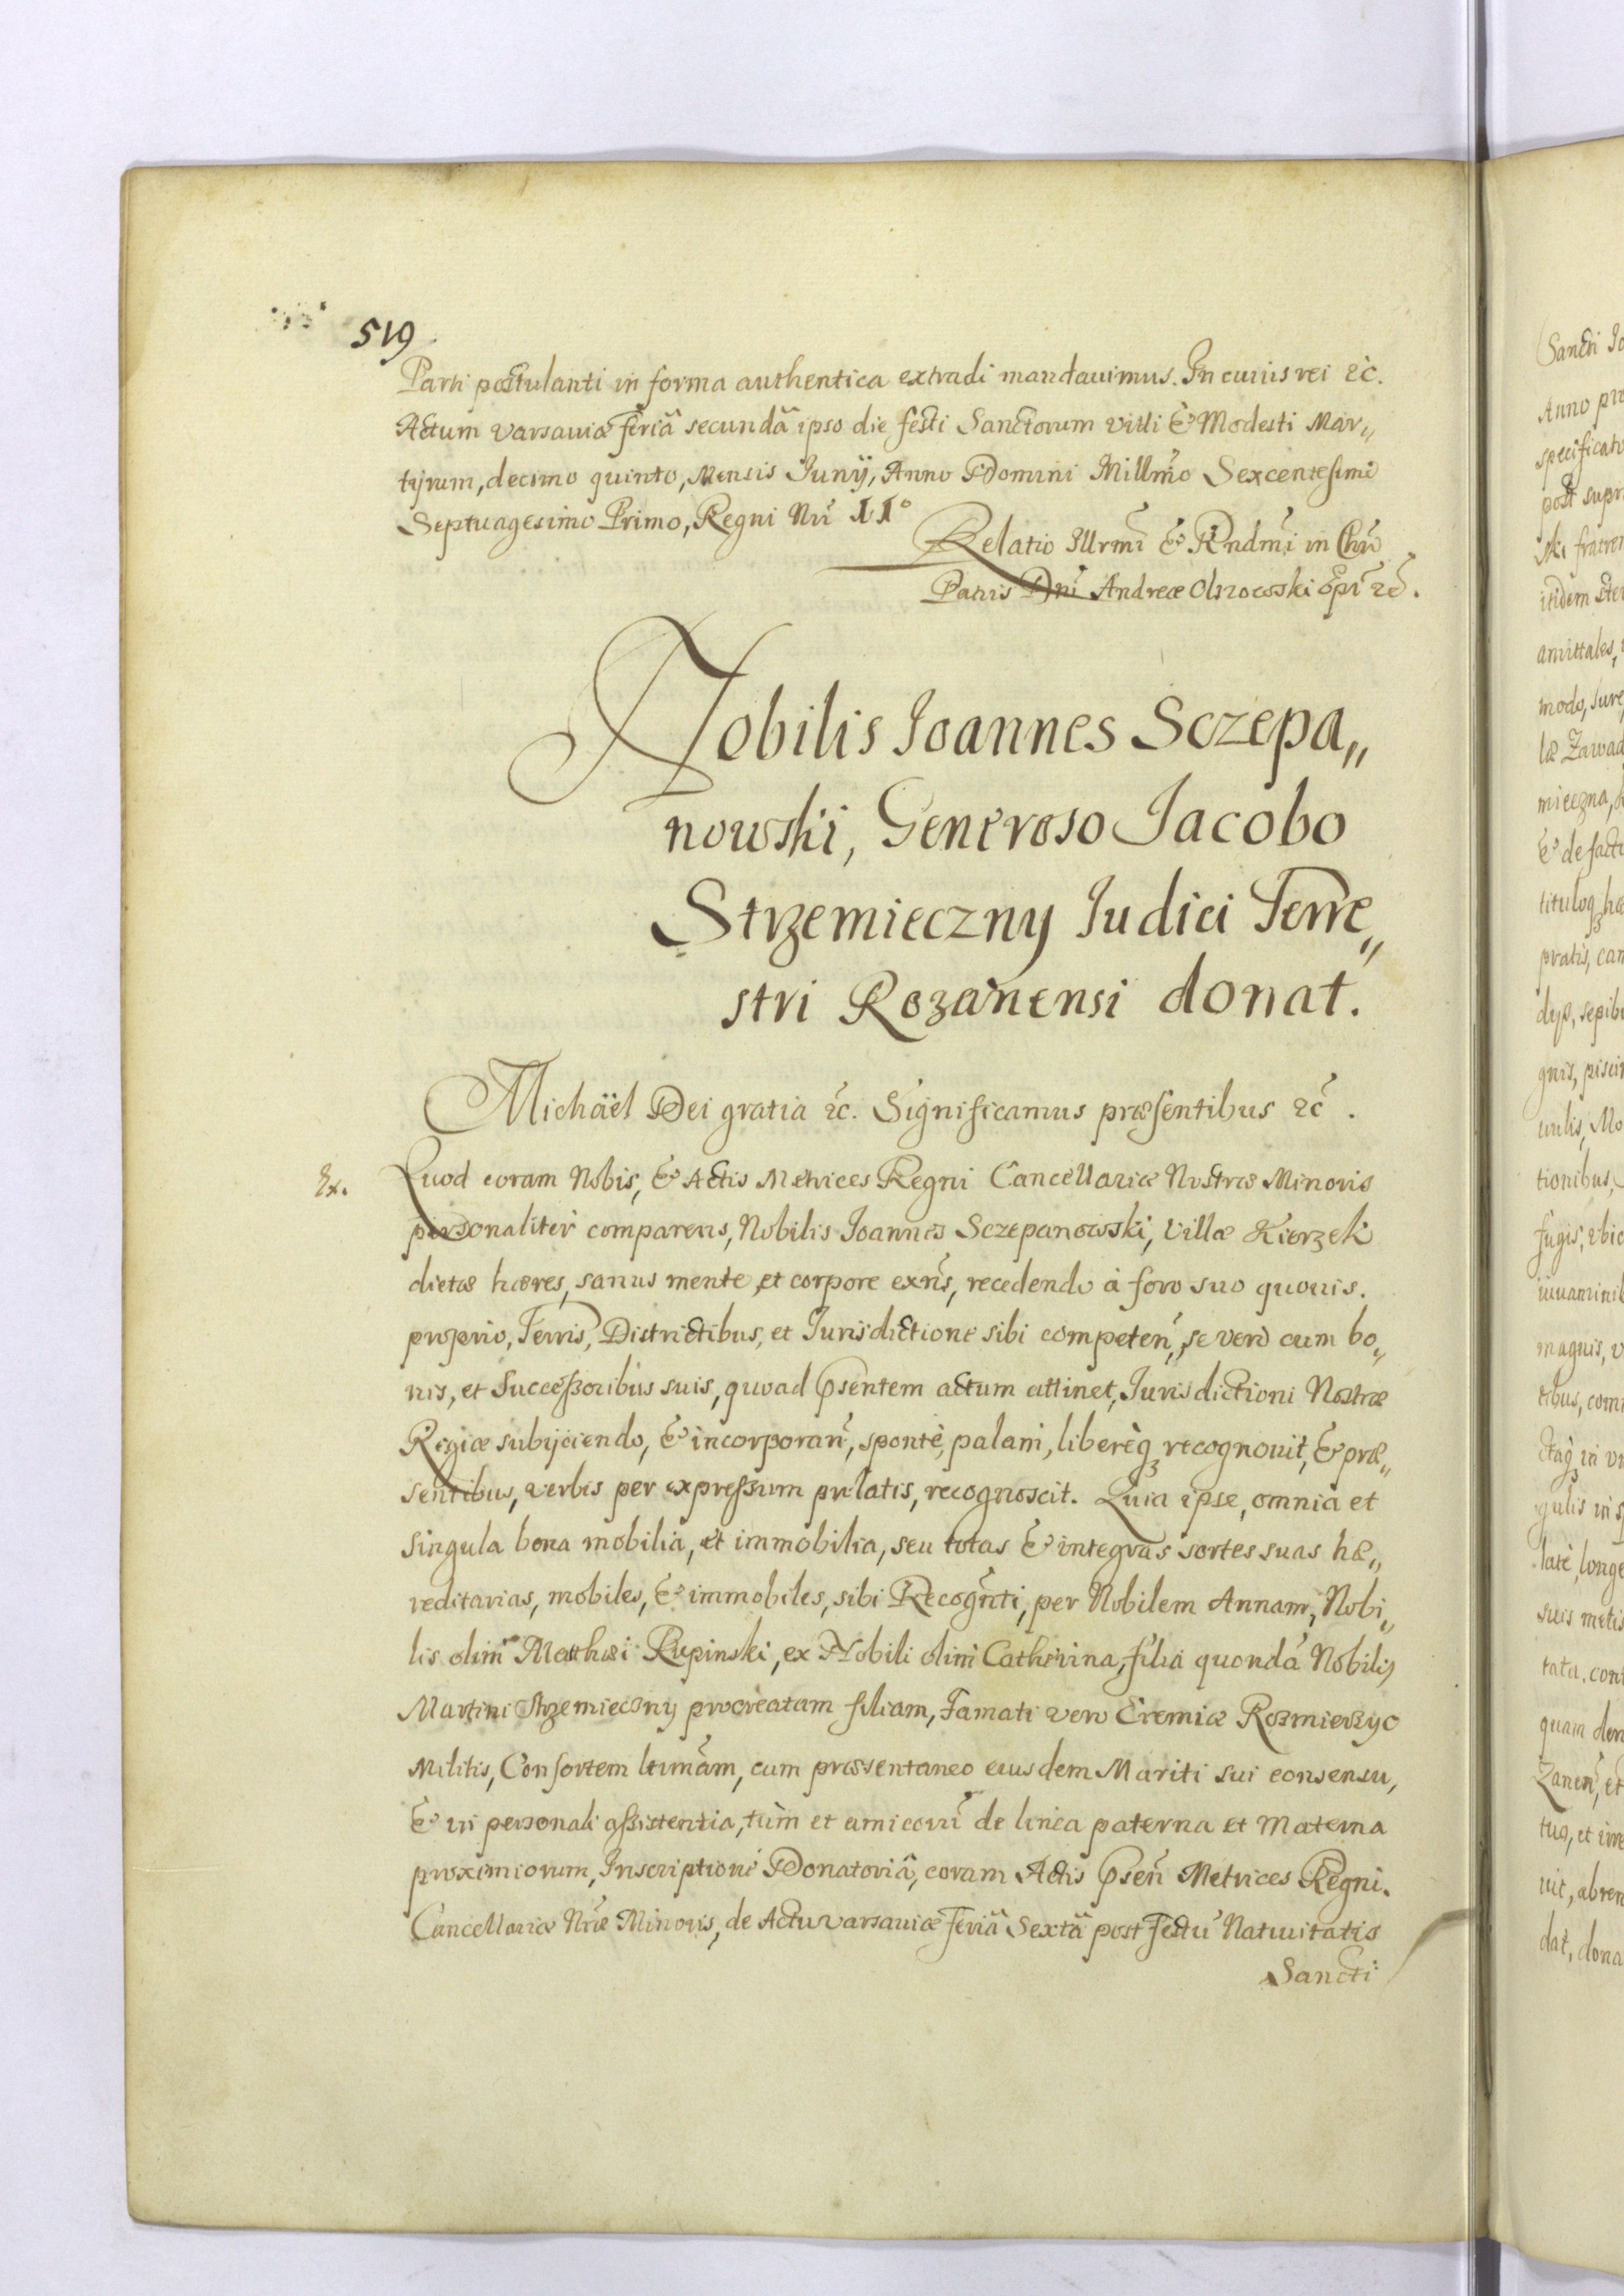 519
Parti postulanti in forma authentica extradi mandauimus. In cuius rei &c.
Actum Varsauiæ feriâ secundâ ipso die festi Sanctorum Vitti & Modesti Mar„
tyrum, decimo quinto, Mensis Junÿ, Anno Domini Millmõ Sexcentesimo
Septuagesimo Primo, Regni Nrĩ II°
Relatio Illrmĩ & Rndmĩ in Chrõ
Patris Dnĩ Andreæ Olszowski Epĩ &c.
Nobilis Joannes Sczepa„
nowski, Generoso Jacobo
Strzemieczny Judici Terre„
stri Rozanensi donat.
Michäel Dei gratia &c. Significamus præsentibus &c.
Ex. Quod coram Nobis, & Actis Metrices Regni Cancellariæ Nostræ Minoris
personaliter comparens, Nobilis Joannes Sczepanowski, Villæ Kierzek
dictæ hæres, sanus mente et corpore exñs, recedendo à foro suo quouis.
proprio, Terris, Districtibus, et Jurisdictione sibi competeñ, se verò cum bo„
nis, et Successoribus suis, quoad p̃sentem actum attinet, Jurisdictioni Nostræ
Regiæ subijciendo, & incorporañ, spontè, palam, liberèq recognouit, & præ„
sentibus, verbis per expressum prolatis, recognoscit. Quia ipse, omnia et
singula bona mobilia, et immobilia, seu totas & integras sortes suas hæ„
reditarias, mobiles, & immobiles, sibi Recogñti, per Nobilem Annam, Nobi„
lis olim Matthæi Rupinski, ex Nobili olim Catherina, filia quondã Nobilis
Martini Strzemieczny procreatam filiam, Famati vero Eremiæ Rozmierzyc
Militis, Consortem ltimãm, cum præsentaneo eiusdem Mariti sui consensu,
& in personali assistentia, tùm et amicorũ de linea paterna et Materna
proximiorum, Inscriptione Donatoriâ, coram Actis p̃señ Metrices Regni.
Cancellariæ Nræ Minoris, de Actu Varsauiæ Feriâ Sextâ post Festũ Natiuitatis
Sancti